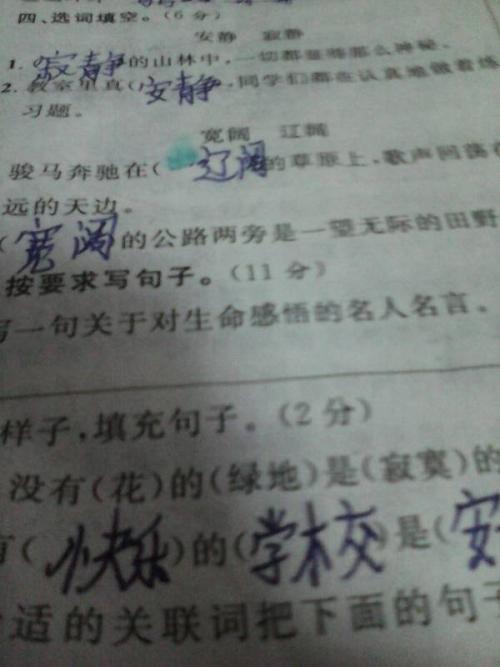 四、选词填空。(6分)
安静 寂静
1. 寂静的山林中,一切都显得那么神秘。
2. 教室里真(安静,同学们都在认真地做着练
习题。
宽阔 辽阔
骏马奔驰在(辽阔的草原上,歌声回荡在
远的天边。
(宽阔的公路两旁是一望无际的田野
按要求写句子。(11分)
写一句关于对生命感悟的名人名言。
样子,填充句子。(2分)
没有(花)的(绿地)是(寂寞)的
有(快乐)的(学校)是(安
适的关联词把下面的句子